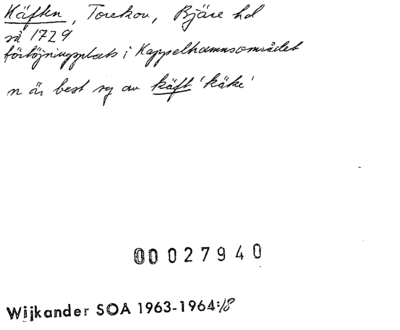 Käften, Torekov, Bjäre hd
så 1729
förtöjningsplats i Kappelhamnsområdet
n är best sg av käft 'käke'
00027940
Wijkander SOA 1963-1964:18